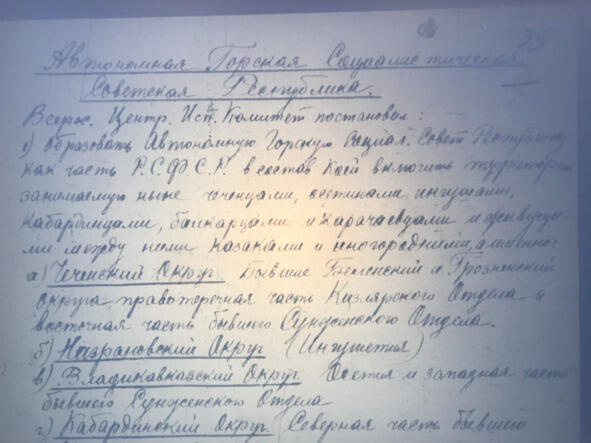 95
Автономная Горская Социалистическая
Советская Республика.
Всерос. Центр. Исп. Комитет постановил:
1) образовать Автономную Горскую Социал. Совет. Республику
как часть Р.С.Ф.С.Р. в состав коей включить территорию
занимаемую ныне чеченцами, осетинами, ингушами,
кабардинцами, балкарцами и карачаевцами и живущи-
ми между ними казаками и иногородними, а именно:
а) Чеченский Округ. Бывшие Веденский и Грозненский
округа, правотеречная часть Кизлярского Отдела и
восточная часть бывшего Сунженского Отдела.
б) Назрановский Округ (Ингушетия)
в) Владикавказский Округ Осетия и западная часть
бывшего Сунженского Отдела
г) Кабардинский Округ. Северная часть бывшего